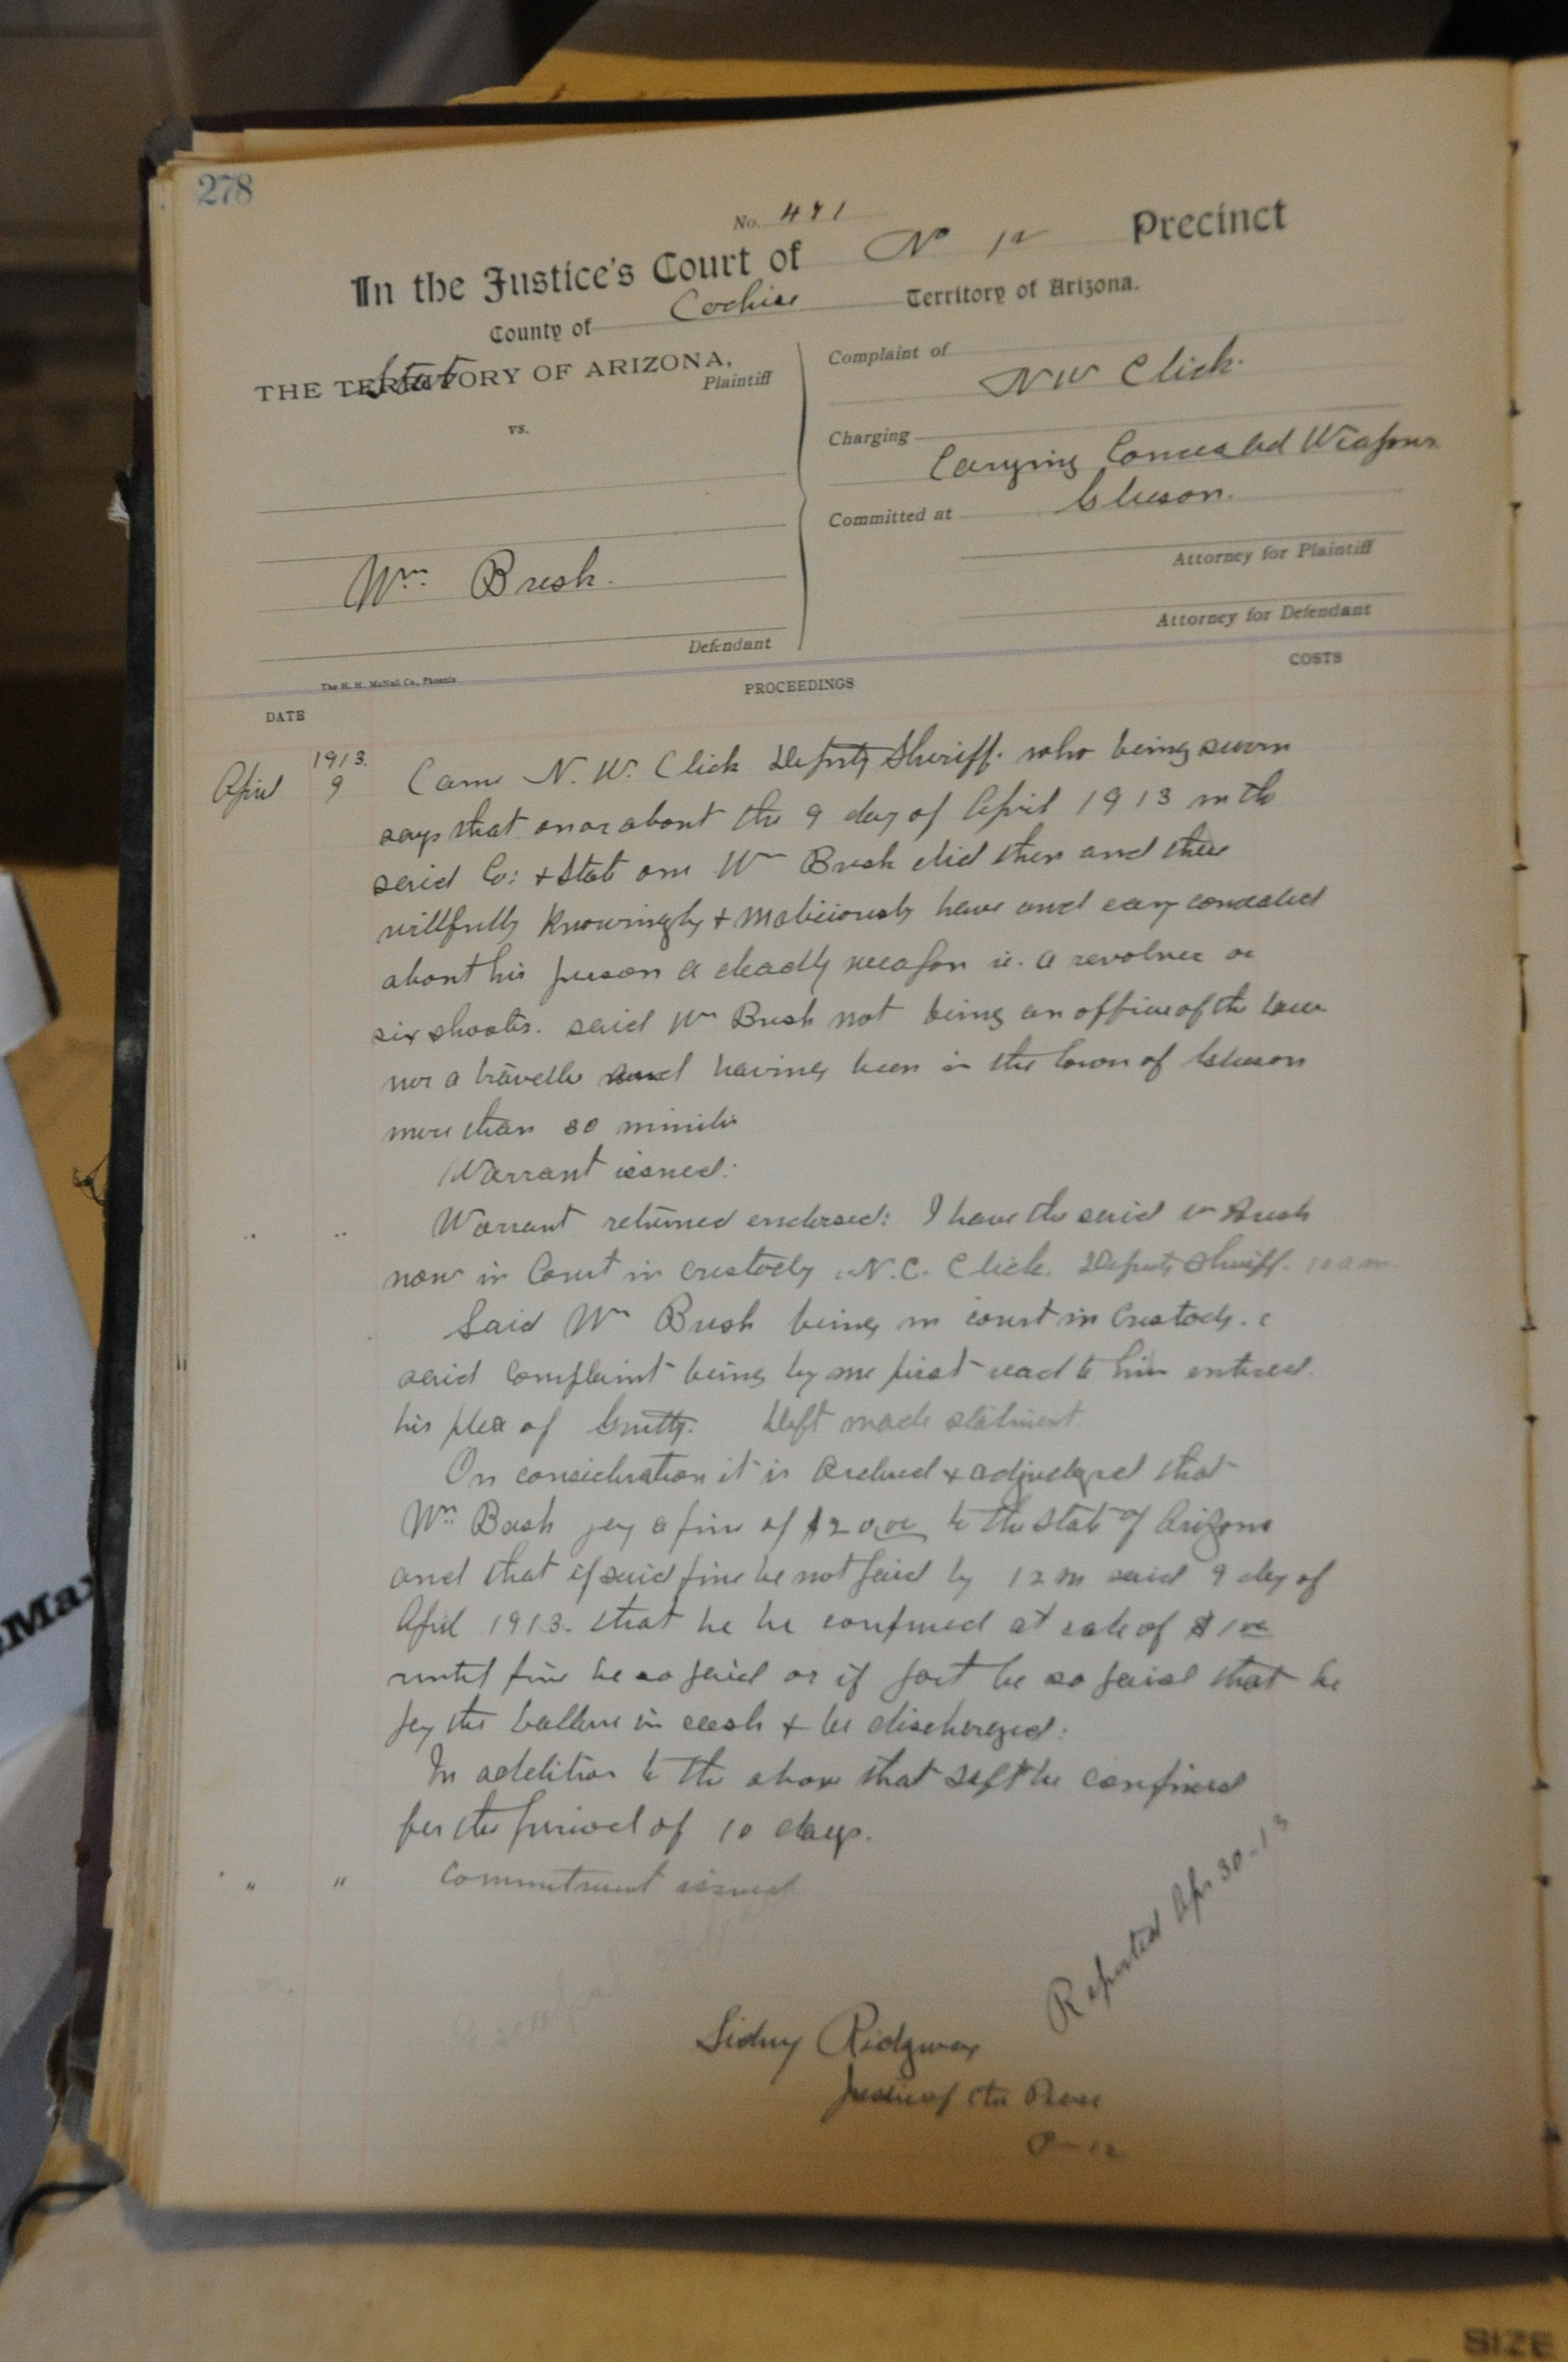 278
No. 471
In the Justice's Court of No 12 Precinct
County of Cochise Territory of Arizona.
THE TERRITORY OF ARIZONA,
State
Plaintiff
vs.
Wm Bush.
Defendant
Complaint of
N W Click.
Charging
Carrying Concealed Weapons
Committed at Gleeson.
Attorney for Plaintiff
Attorney for Defendant
The H. H. McNeil Co., Phoenix
DATE PROCEEDINGS COSTS
1913.
April 9 Came N. W. Click Deputy Sheriff. who being sworn
says that on or about the 9 day of April 1913 in the
said Co: + State one Wm Bush did then and there
willfully knowingly + maliciously have and cary concealed
about his person a deadly weapon ie. a revolver or
six shooter. said Wm Bush not being an officer of the law
nor a traveller and having been in the town of Gleeson
more than 30 minutes
Warrant issued:
" " Warrant returned endorsed: I have the said Wm Bush
now in Court in custody N.C. Click. Deputy Sheriff. 10 am
Said Wm Bush being in court in Custody.
" said Complaint being by me first read to him entered
his plea of Guilty. Deft made statment
On consideration it is Ordered + adjudged that
Wm Bush pay a fine of $20.00 to the State of Arizona
and that if said fine be not paid by 12 m said 9 day of
April 1913. that he be confined at rate of $1 00
until fine be so paid or if part be so paid that he
pay the ballence in cash + be discharged:
In addition to the above that deft be confined
for the period of 10 days.
" " Commitment issued
Reported Apr 30-13
Sidney Ridgway
Justice of the Peace
P-12
SIZE
Max